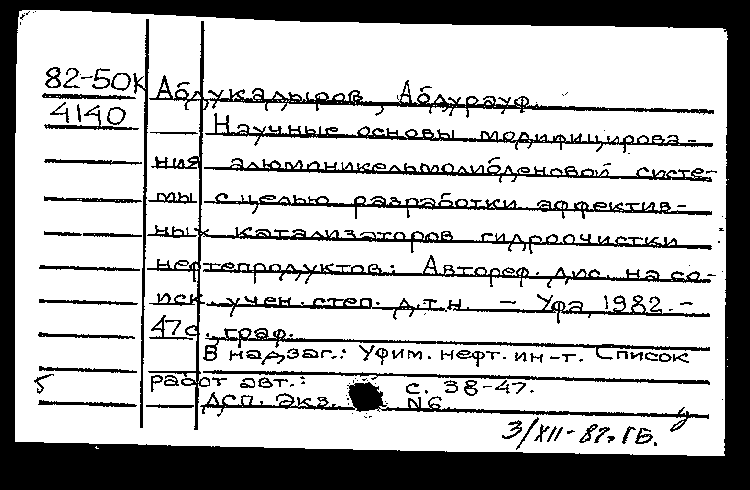 82-50к Абдукадыров, Абдурауф.
4140 Научные основы модифицирова-
ния алюмоникельмолибденовой систе-
мы с целью разработки эффектив-
ных катализаторов гидроочистки
нефтепродуктов: Автореф. дис. на со-
иск. учен. степ. д.т.н. - Уфа, 1982. -
47с., граф.
В надзаг.: Уфим. нефт. ин-т. Список
работ авт.: с. 38-47.
5
ДСП. Экз. N6.
3/XII-82г. ГБ.